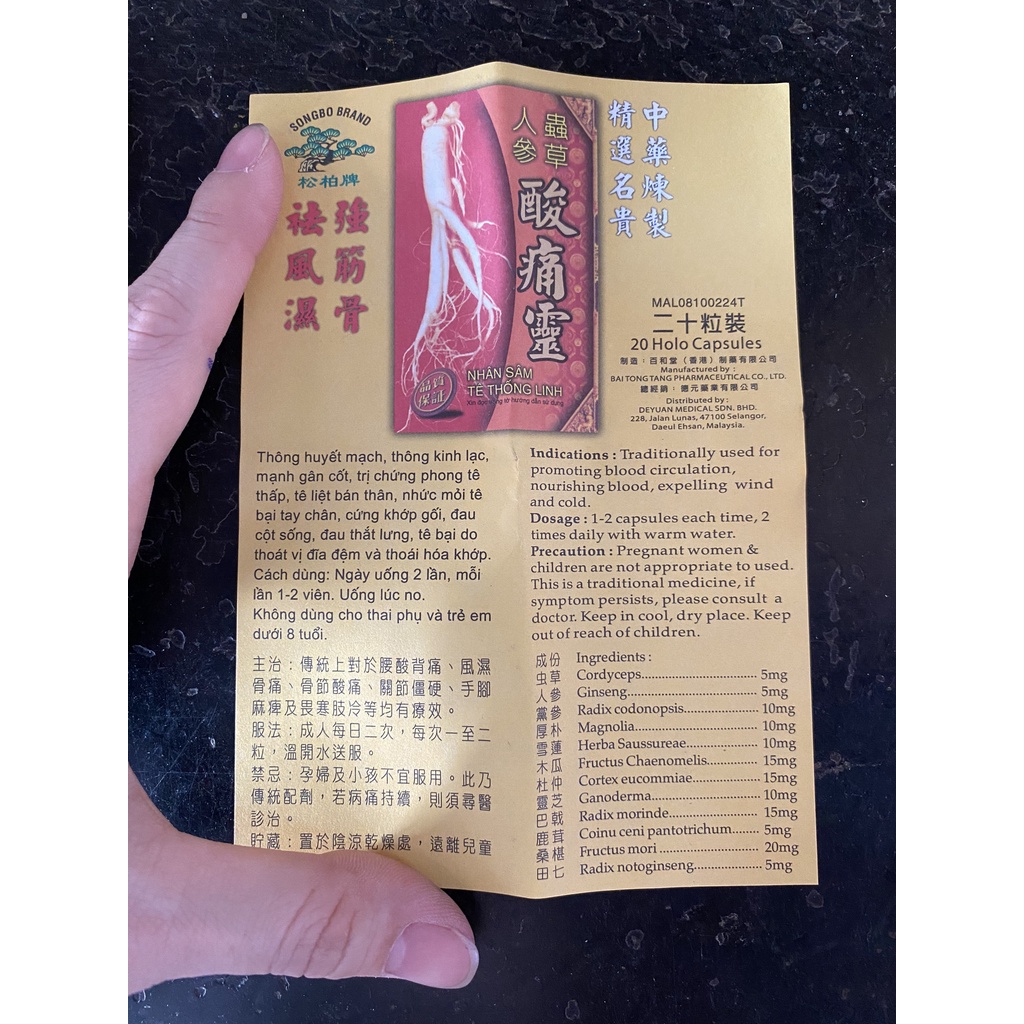 SONGBO BRAND
松柏牌
強筋骨
祛風濕
蟲草
人參
酸痛靈
品質
保証
NHÂN SÂM
TÊ THỐNG LINH
中藥煉製
精選名貴
MAL08100224T
二十粒裝
20 Holo Capsules
制造：百和堂（香港）制藥有限公司
Manufactured by :
BAI TONG TANG PHARMACEUTICAL CO., LTD.
總經銷：德元藥業有限公司
Distributed by :
DEYUAN MEDICAL SDN. BHD.
228, Jalan Lunas, 47100 Selangor,
Daeul Ehsan, Malaysia.
Thông huyết mạch, thông kinh lạc,
mạnh gân cốt, trị chứng phong tê
thấp, tê liệt bán thân, nhức mỏi tê
bại tay chân, cứng khớp gối, đau
cột sống, đau thắt lưng, tê bại do
thoát vị đĩa đệm và thoái hóa khớp.
Cách dùng: Ngày uống 2 lần, mỗi
lần 1-2 viên. Uống lúc no.
Không dùng cho thai phụ và trẻ em
dưới 8 tuổi.
主治：傳統上對於腰酸背痛、風濕
骨痛、骨節酸痛、關節僵硬、手腳
麻痺及畏寒肢冷等均有療效。
服法：成人每日二次，每次一至二
粒，溫開水送服。
禁忌：孕婦及小孩不宜服用。此乃
傳統配劑，若病痛持續，則須尋醫
診治。
貯藏：置於陰涼乾燥處，遠離兒童
Indications : Traditionally used for
promoting blood circulation,
nourishing blood, expelling wind
and cold.
Dosage : 1-2 capsules each time, 2
times daily with warm water.
Precaution : Pregnant women &
children are not appropriate to used.
This is a traditional medicine, if
symptom persists, please consult a
doctor. Keep in cool, dry place. Keep
out of reach of children.
成份 Ingredients :
虫草 Cordyceps.................................. 5mg
人參 Ginseng....................................... 5mg
黨參 Radix codonopsis....................... 10mg
厚朴 Magnolia.................................... 10mg
雪蓮 Herba Saussureae...................... 10mg
木瓜 Fructus Chaenomelis............... 15mg
杜仲 Cortex eucommiae.................... 15mg
靈芝 Ganoderma................................ 10mg
巴戟 Radix morinde........................... 15mg
鹿茸 Coinu ceni pantotrichum........ 5mg
桑椹 Fructus mori .............................. 20mg
田七 Radix notoginseng.................... 5mg